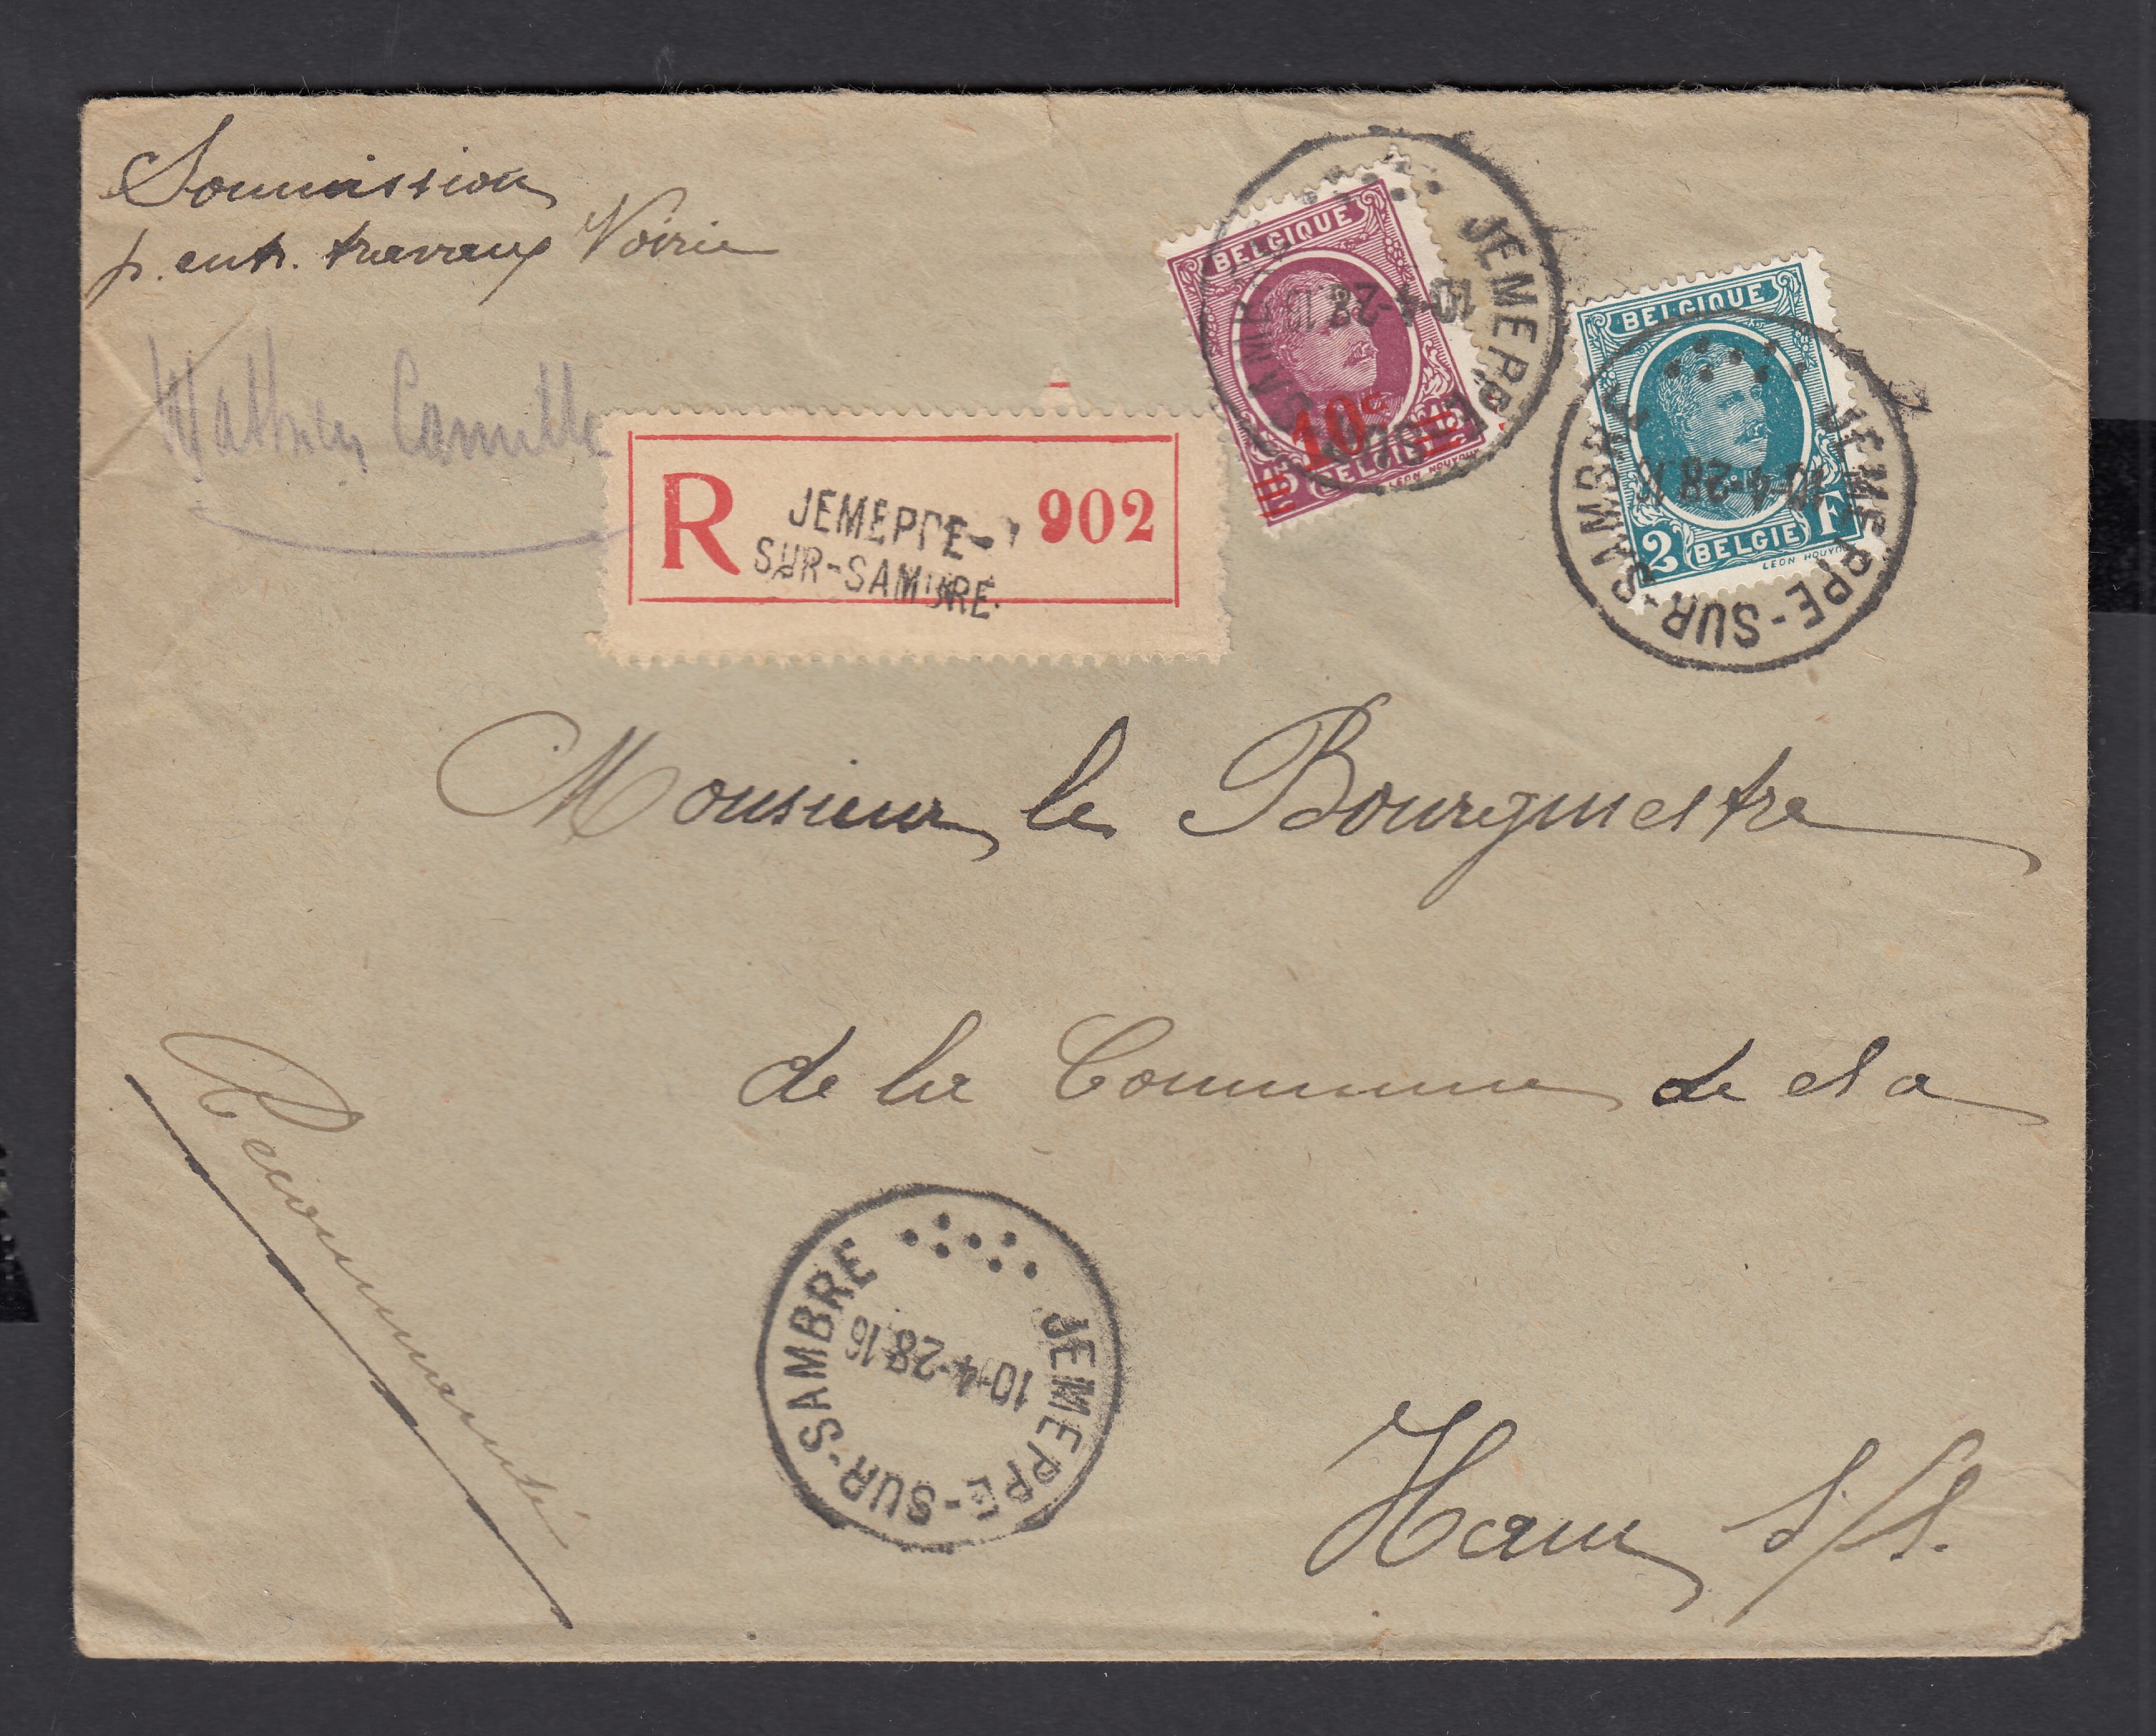 Soumission
p. entr. travaux Voirie
Mathieu Camille
R JEMEPPE-
SUR-SAMBRE. 902
BELGIQUE
10c
BELGIË
LEON HOUYOUX
JEMEPPE-SUR-SAMBRE
10-4-28.16
BELGIQUE
2 BELGIË F
LEON HOUYOUX
JEMEPPE-SUR-SAMBRE
10-4-28.16
Monsieur le Bourgmestre
de la Commune de et à
Recommandé
JEMEPPE-SUR-SAMBRE
10-4-28.16
Ham s/S.